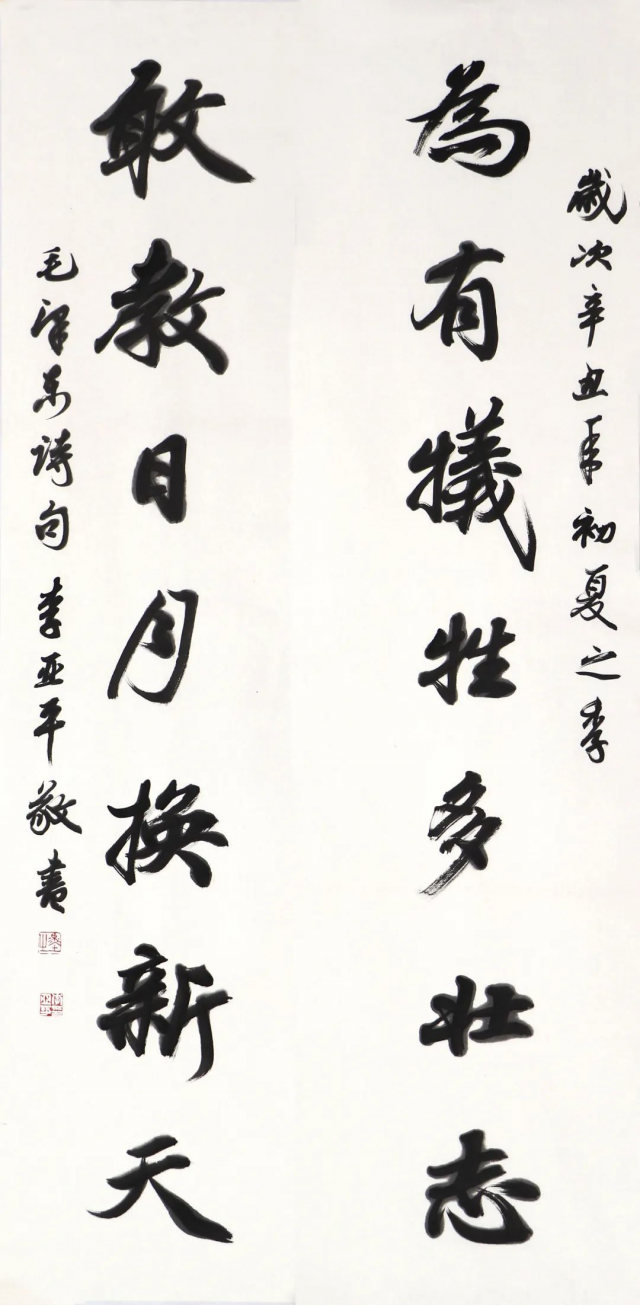 歲次辛丑年初夏之季
為有犧牲多壯志
敢教日月換新天
毛泽东诗句李亚平敬書